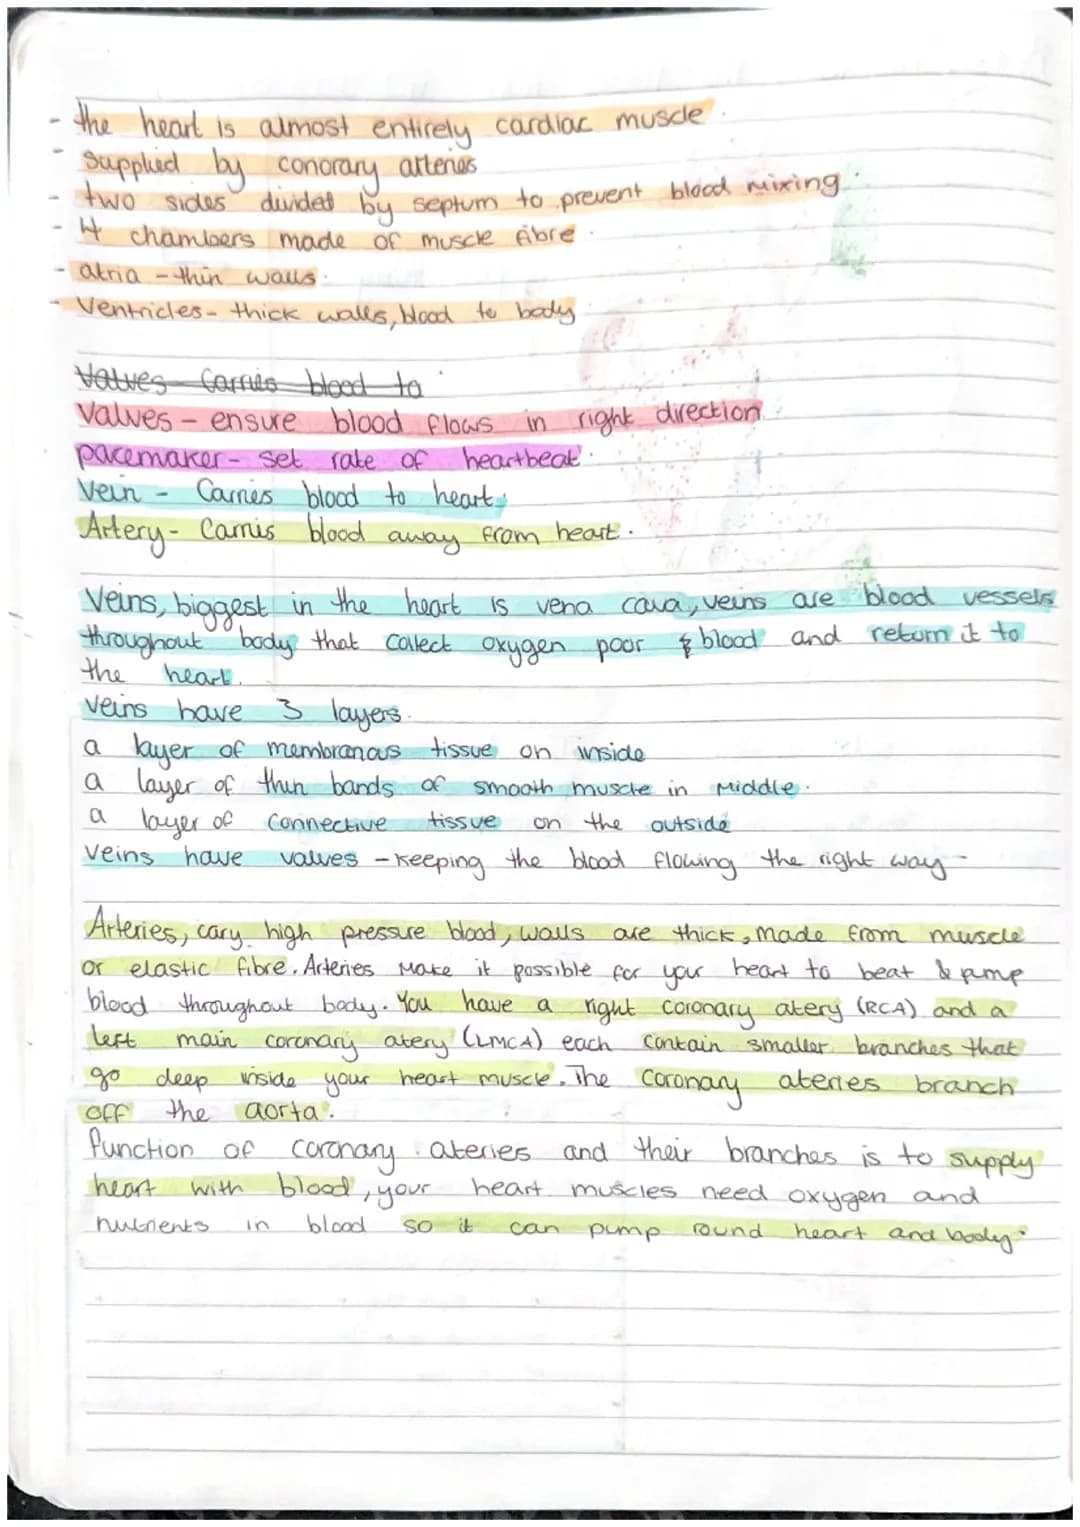 - the heart is almost entirely cardiac muscle.
- Supplied by conorary arteries
- two sides divided by septum to prevent blood mixing.
- 4 chambers made of muscle fibre.
- atria - thin walls.
- Ventricles - thick walls, blood to body
Valves - Carries blood to
Valves - ensure blood flows in right direction.
pacemaker - set rate of heartbeat.
Vein - Carries blood to heart.
Artery - Carris blood away from heart.
Veins, biggest in the heart is vena cava, veins are blood vessels
throughout body that collect oxygen poor & blood and return it to
the heart.
Veins have 3 layers.
a layer of membranas tissue on inside
a layer of thin bands of smooth muscle in Middle.
a layer of connective tissue on the outside
Veins have valves - keeping the blood flowing the right way -
Arteries, cary high pressure blood, walls are thick, made from muscle
or elastic fibre. Arteries Make it possible for your heart to beat & pump
blood throughout body. You have a right coronary atery (RCA) and a
left main coronary atery (LMCA) each contain smaller branches that
go deep inside your heart muscle. The coronary ateries branch
off the aorta.
function of coronary ateries and their branches is to supply
heart with blood, your heart muscles need oxygen and
nutrients in blood so it can pump round heart and body.